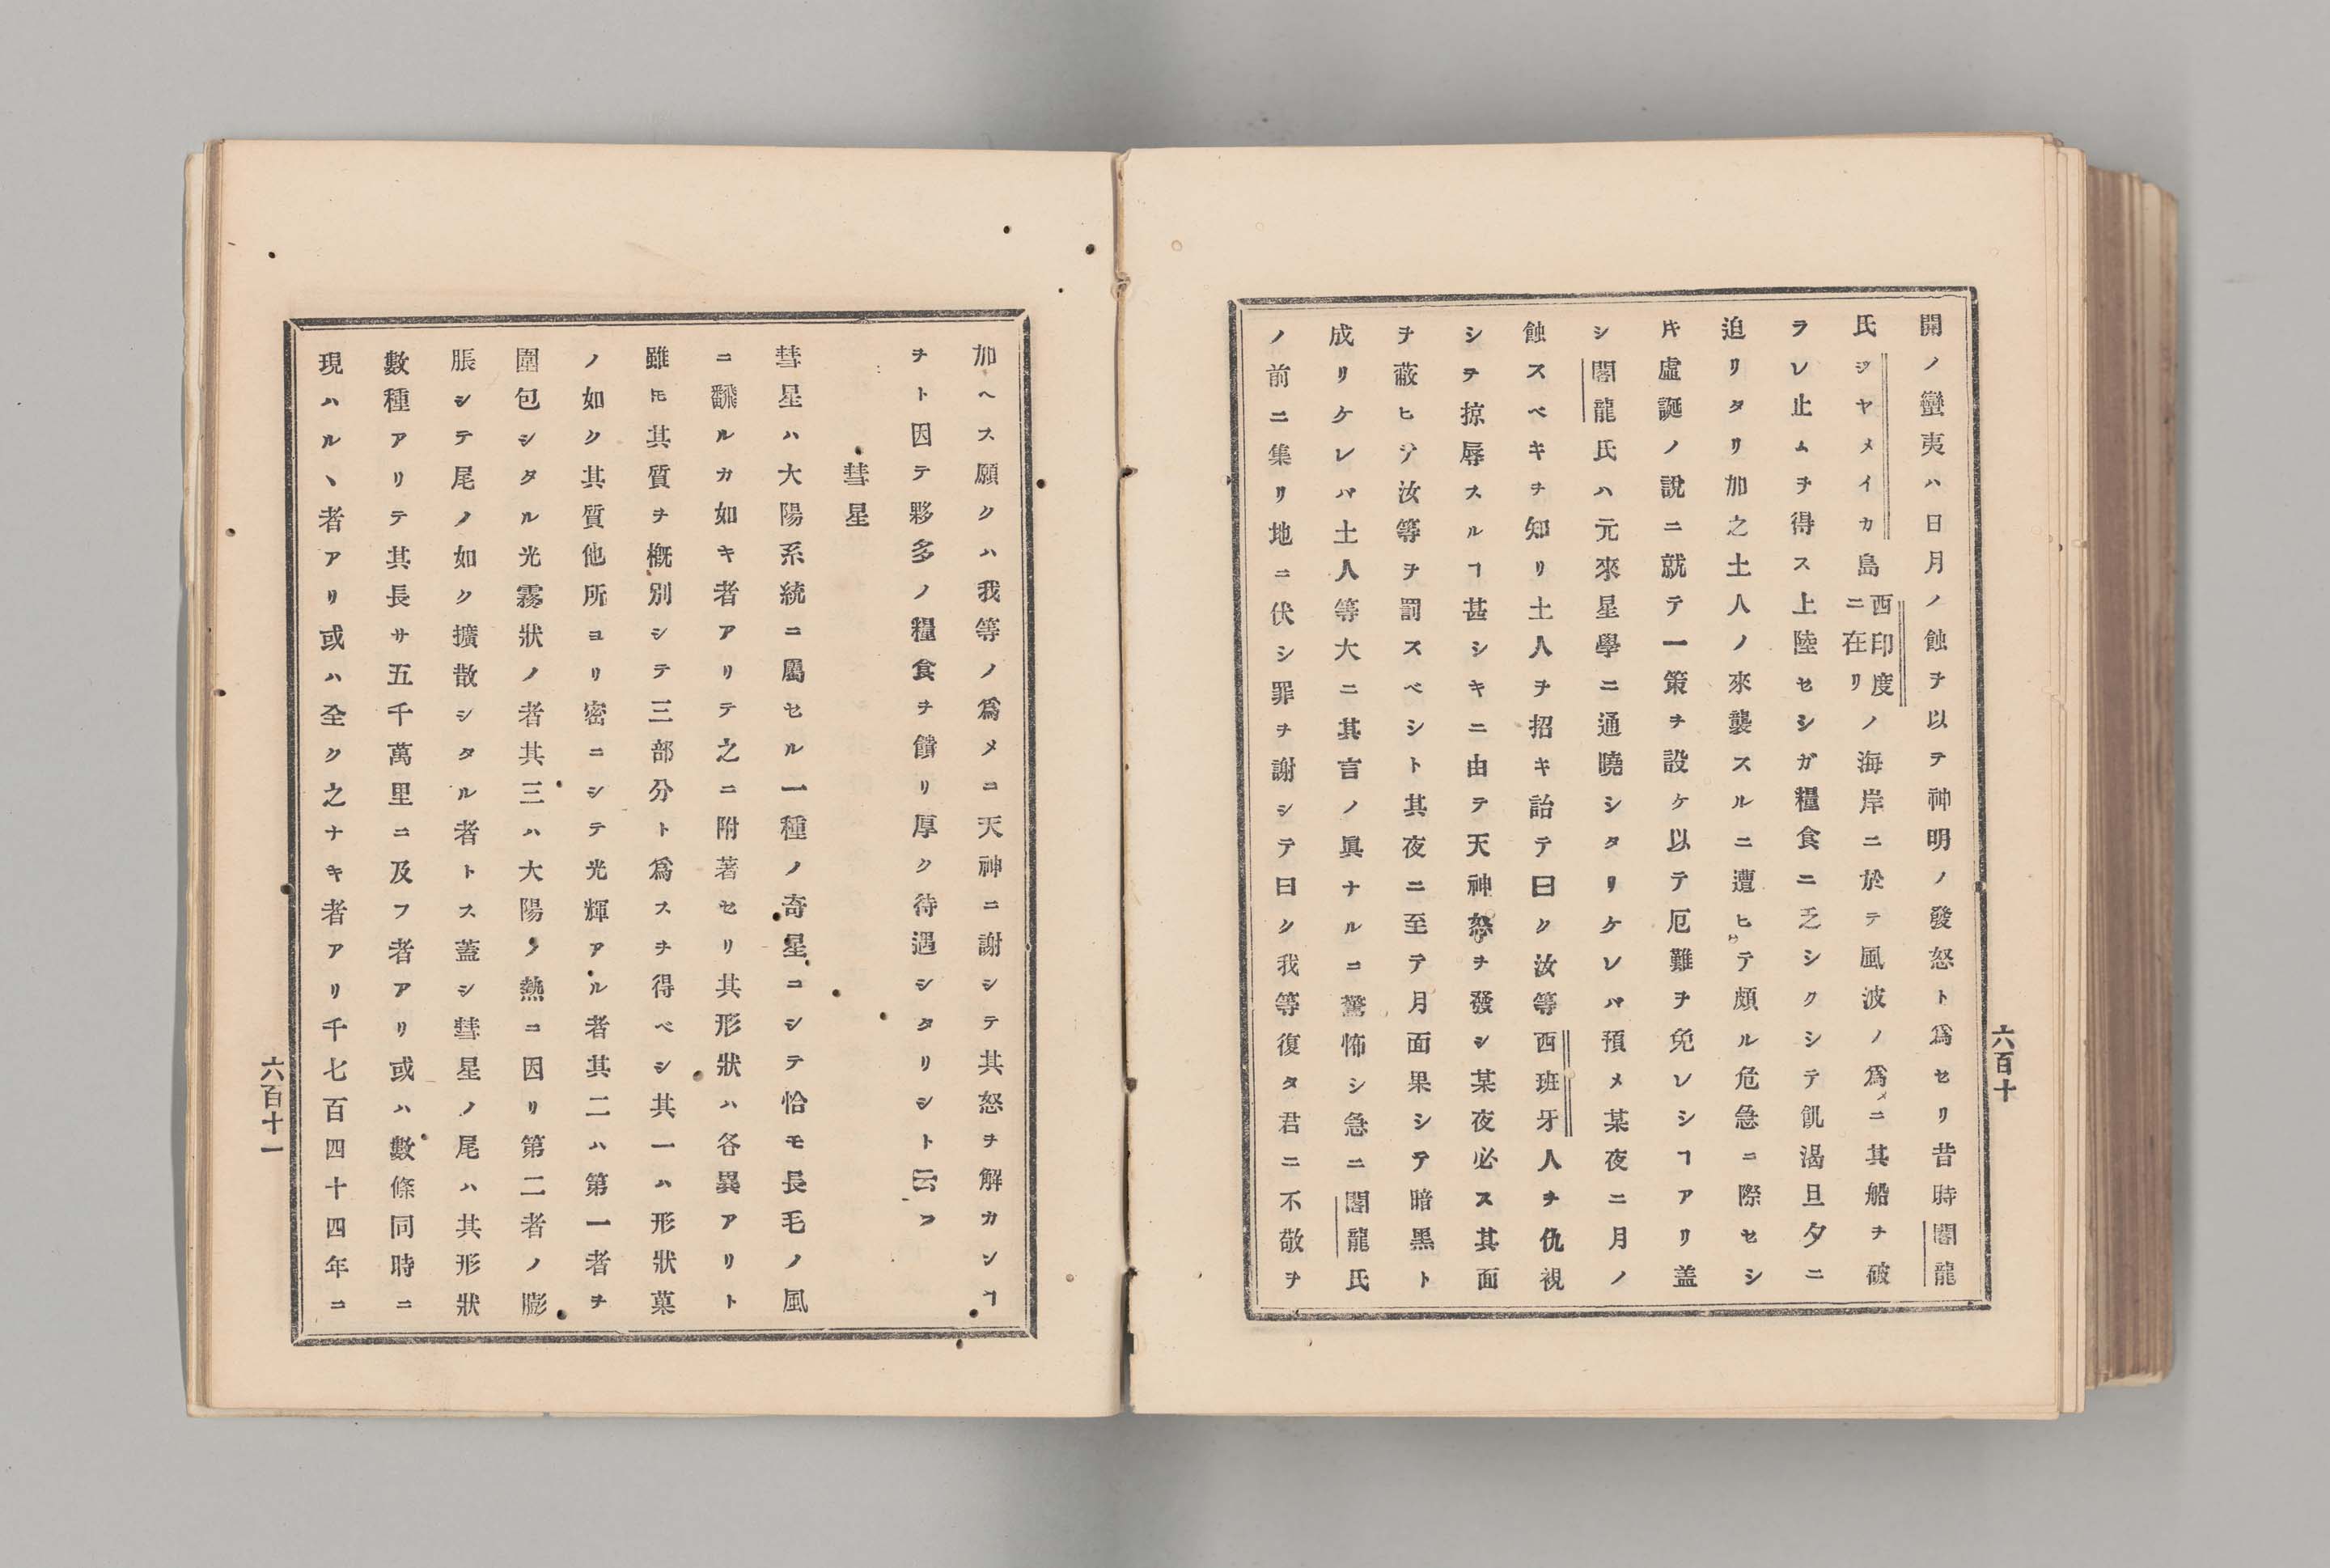 六百十
開ノ蠻夷ハ日月ノ蝕ヲ以テ神明ノ發怒ト爲セリ昔時閣龍
氏ジヤメイカ島西印度ニ在リノ海岸ニ於テ風波ノ爲メニ其船ヲ破
ラレ止ムヲ得ス上陸セシガ糧食ニ乏シクシテ飢渇旦夕ニ
迫リタリ加之土人ノ來襲スルニ遭ヒテ頗ル危急ニ際セシ
𪜈虛誕ノ說ニ就テ一策ヲ設ケ以テ厄難ヲ免レシヿアリ盖
シ閣龍氏ハ元來星學ニ通曉シタリケレバ預メ某夜ニ月ノ
蝕スベキヲ知リ土人ヲ招キ詒テ曰ク汝等西班牙人ヲ仇視
シテ掠辱スルヿ甚シキニ由テ天神怒ヲ發シ某夜必ス其面
ヲ蔽ヒテ汝等ヲ罰スベシト其夜ニ至テ月面果シテ暗黑ト
成リケレバ土人等大ニ其言ノ眞ナルニ驚怖シ急ニ閣龍氏
ノ前ニ集リ地ニ伏シ罪ヲ謝シテ曰ク我等復タ君ニ不敬ヲ
加ヘス願クハ我等ノ爲メニ天神ニ謝シテ其怒ヲ解カンヿ
ヲト因テ夥多ノ糧食ヲ饋リ厚ク待遇シタリシト云フ
彗星
彗星ハ大陽系統ニ屬セル一種ノ奇星ニシテ恰モ長毛ノ風
ニ飜ルカ如キ者アリテ之ニ附著セリ其形狀ハ各異アリト
雖𪜈其質ヲ槪別シテ三部分ト爲スヲ得ベシ其一ハ形狀菓
ノ如ク其質他所ヨリ密ニシテ光輝アル者其二ハ第一者ヲ
圍包シタル光霧狀ノ者其三ハ大陽ノ熱ニ因リ第二者ノ膨
脹シテ尾ノ如ク擴散シタル者トス蓋シ彗星ノ尾ハ其形狀
數種アリテ其長サ五千萬里ニ及フ者アリ或ハ數條同時ニ
現ハルヽ者アリ或ハ全ク之ナキ者アリ千七百四十四年ニ
六百十一